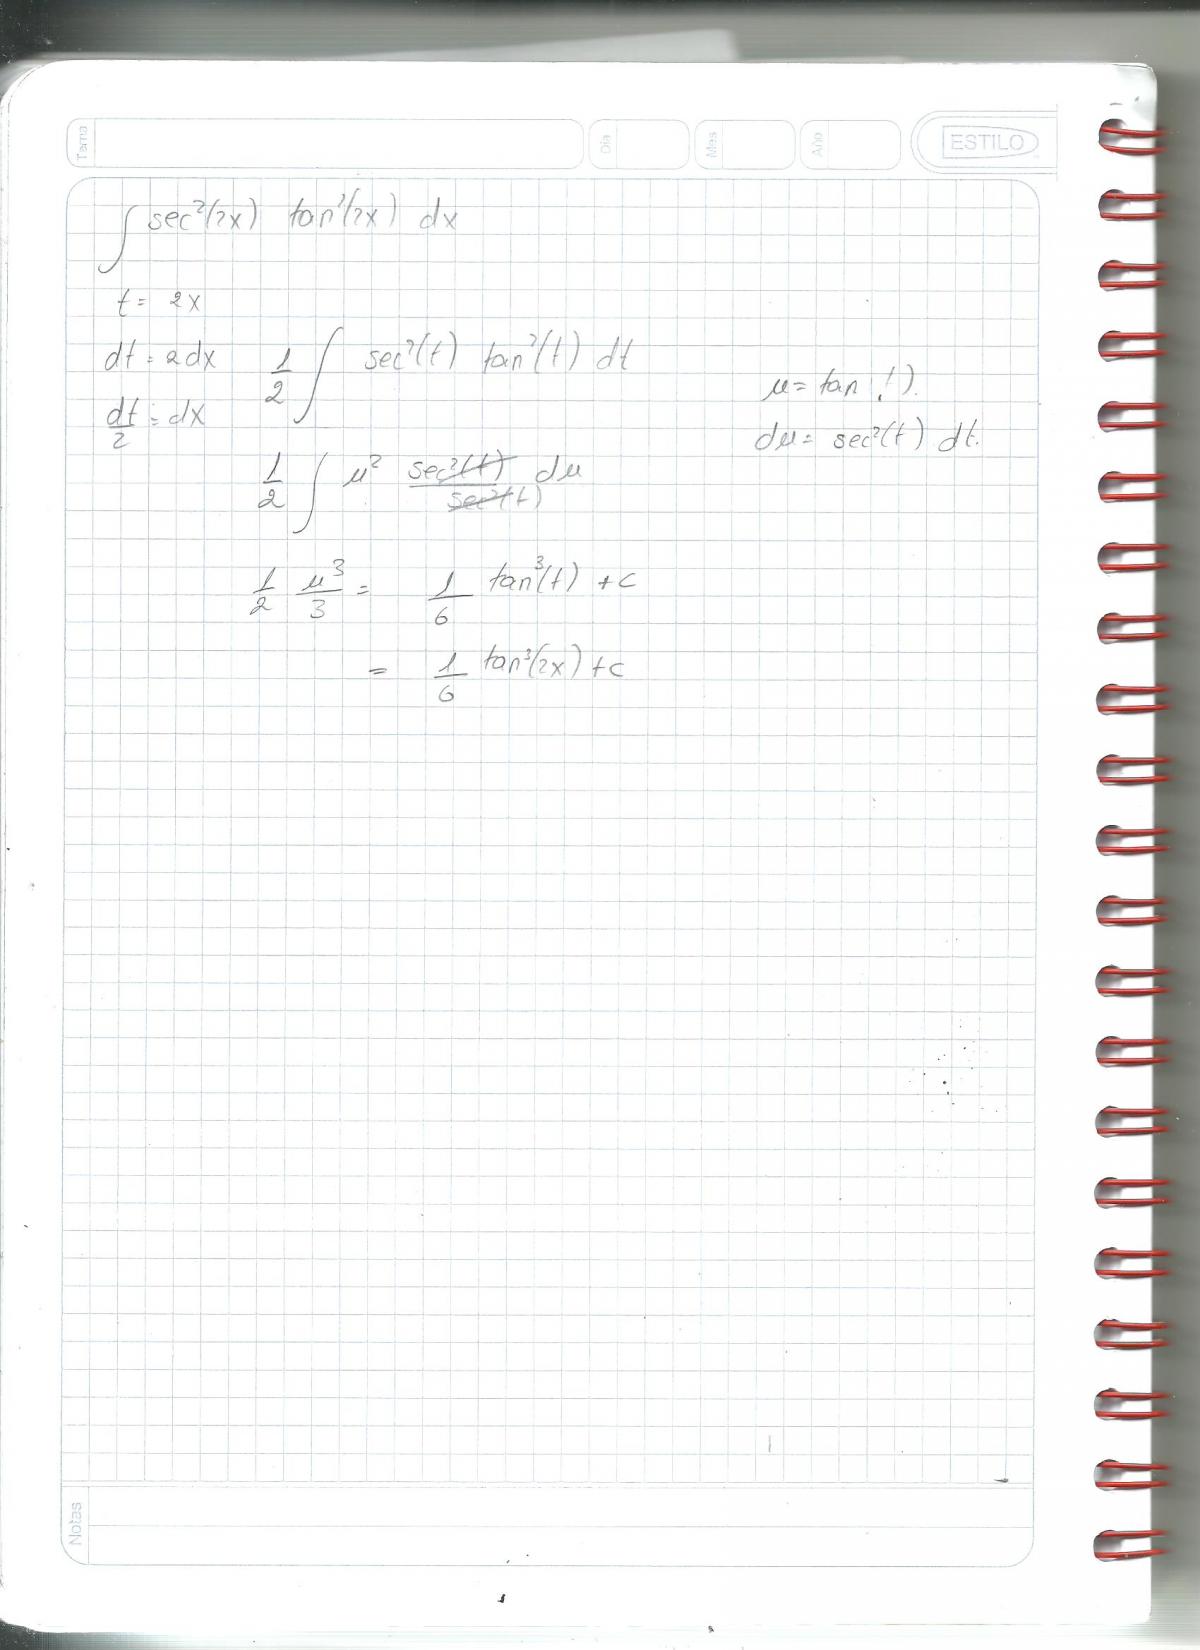 Tema Día Mes Año ESTILO
∫ sec²(2x) tan²(2x) dx
t = 2x
dt = 2dx 1/2 ∫ sec²(t) tan²(t) dt
u = tan
dt/2 = dx
du = sec²(t) dt.
1/2 ∫ u² sec²(t)/sec²(t) du
1/2 u³/3 = 1/6 tan³(t) + c
= 1/6 tan³(2x) + c
Notas